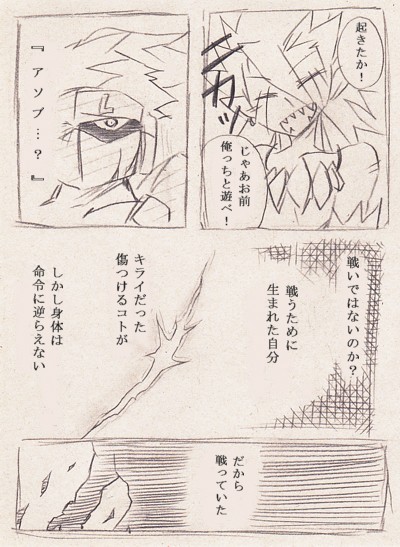 起きたか！
ニカッ
じゃあお前
俺っちと遊べ！
『アソブ…？』
戦いではないのか？
戦うために
生まれた自分
キライだった
傷つけるコトが
しかし身体は
命令に逆らえない
だから
戦っていた